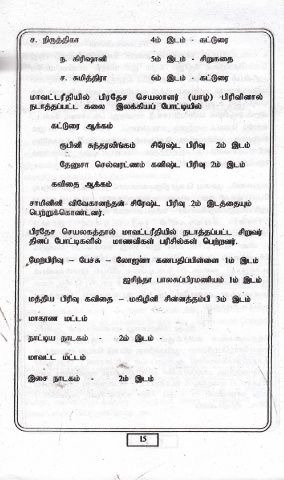 ச. நிருத்திகா 4ம் இடம் - கட்டுரை
ந. கிரிஷானி 5ம் இடம் - சிறுகதை
ச. சுமித்திரா 6ம் இடம் - கட்டுரை
மாவட்டரீதியில் பிரதேச செயலாளர் (யாழ்) பிரிவினால்
நடாத்தப்பட்ட கலை இலக்கியப் போட்டியில்
கட்டுரை ஆக்கம்
ரூபினி சுந்தரலிங்கம் சிரேஷ்ட பிரிவு 2ம் இடம்
தேனுசா செல்வரட்ணம் கனிஷ்ட பிரிவு 2ம் இடம்
கவிதை ஆக்கம்
சாமினினி விவேகானந்தன் சிரேஷ்ட பிரிவு 2ம் இடத்தையும்
பெற்றுக்கொண்டனர்.
பிரதேச செயலகத்தால் மாவட்டரீதியில் நடாத்தப்பட்ட சிறுவர்
தினப் போட்டிகளில் மாணவிகள் பரிசில்கள் பெற்றனர்.
மேற்பிரிவு – பேச்சு – லோஜனா கணபதிப்பிள்ளை 1ம் இடம்
ஜசிந்தா பாலசுப்பிரமணியம் 1ம் இடம்
மத்திய பிரிவு கவிதை – மகிழினி சின்னத்தம்பி 3ம் இடம்
மாகாண மட்டம்
நாட்டிய நாடகம் - 2ம் இடம் -
மாவட்ட மட்டம்
இசை நாடகம் - 2ம் இடம்
15